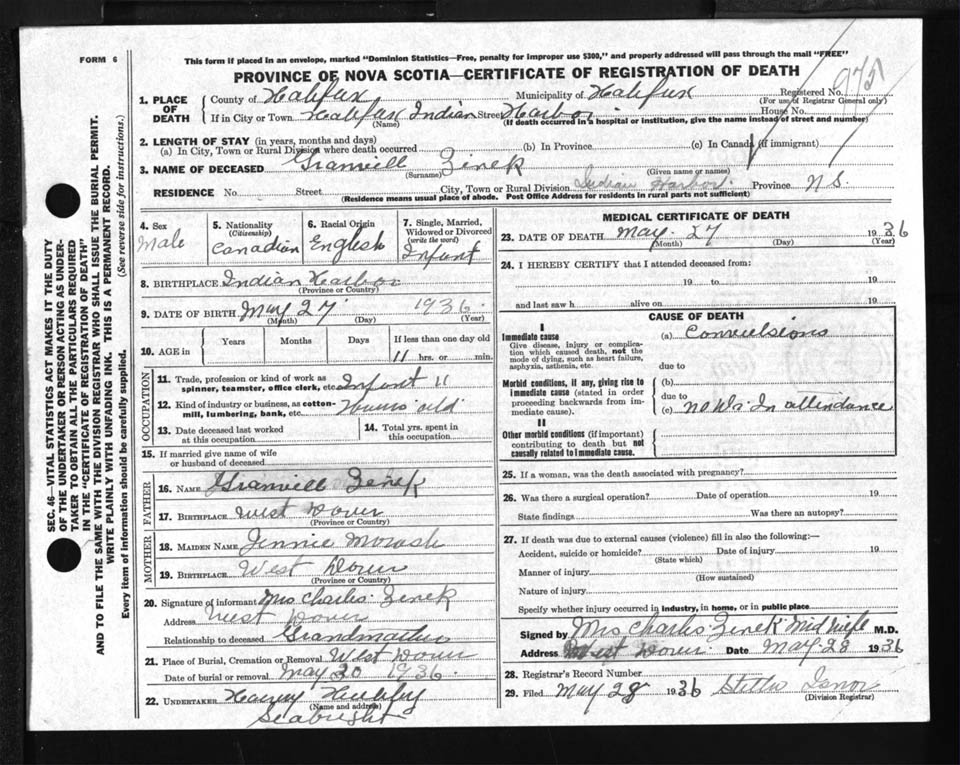 FORM 6
This form if placed in an envelope, marked "Dominion Statistics—Free, penalty for improper use $300," and properly addressed will pass through the mail "FREE"
PROVINCE OF NOVA SCOTIA—CERTIFICATE OF REGISTRATION OF DEATH
Registered No.
(For use of Registrar General only)
1. PLACE OF DEATH
County of Halifax Municipality of Halifax
If in City or Town Halifax Indian Street Harbor House No.
(Name) (If death occurred in a hospital or institution, give the name instead of street and number)
2. LENGTH OF STAY (in years, months and days)
(a) In City, Town or Rural Division where death occurred (b) In Province (c) In Canada (if immigrant)
3. NAME OF DECEASED Granvill Zinck
(Surname) (Given name or names)
RESIDENCE No. Street City, Town or Rural Division Indian Harbor Province N S.
(Residence means usual place of abode. Post Office Address for residents in rural parts not sufficient)
4. Sex
Male
5. Nationality
(Citizenship)
Canadian
6. Racial Origin
English
7. Single, Married, Widowed or Divorced
(write the word)
Infant
8. BIRTHPLACE Indian Harbor
(Province or Country)
9. DATE OF BIRTH May 27 1936
(Month) (Day) (Year)
10. AGE in Years Months Days If less than one day old
11 hrs. or min.
OCCUPATION
11. Trade, profession or kind of work as spinner, teamster, office clerk, etc. Infant 11
12. Kind of industry or business, as cotton-mill, lumbering, bank, etc. hours old
13. Date deceased last worked at this occupation
14. Total yrs. spent in this occupation
15. If married give name of wife or husband of deceased
FATHER
16. NAME Granvill Zinck
17. BIRTHPLACE West Dover
(Province or Country)
MOTHER
18. MAIDEN NAME Jennie Morash
19. BIRTHPLACE West Dover
(Province or Country)
20. Signature of informant Mrs Charles Zinck
Address West Dover
Relationship to deceased Grandmother
21. Place of Burial, Cremation or Removal West Dover
Date of burial or removal May 20 1936
22. UNDERTAKER Harry Hubley
(Name and address)
Seabright
MEDICAL CERTIFICATE OF DEATH
23. DATE OF DEATH May 27 1936
(Month) (Day) (Year)
24. I HEREBY CERTIFY that I attended deceased from:
19 to 19
and last saw h alive on 19
CAUSE OF DEATH
I
Immediate cause
Give disease, injury or complication which caused death, not the mode of dying, such as heart failure, asphyxia, asthenia, etc.
(a) Convulsions
due to
Morbid conditions, if any, giving rise to immediate cause (stated in order proceeding backwards from immediate cause).
(b)
due to
(c) no Drs In attendance
II
Other morbid conditions (if important) contributing to death but not causally related to immediate cause.
25. If a woman, was the death associated with pregnancy?
26. Was there a surgical operation? Date of operation 19
State findings Was there an autopsy?
27. If death was due to external causes (violence) fill in also the following:—
Accident, suicide or homicide? Date of injury 19
(State which)
Manner of injury
(How sustained)
Nature of injury
Specify whether injury occurred in industry, in home, or in public place
Signed by Mrs Charles Zinck Mid Wife M.D.
Address West Dover Date May 28 1936
28. Registrar's Record Number
29. Filed May 28 1936
(Division Registrar)
SEC. 46—VITAL STATISTICS ACT MAKES IT THE DUTY
OF THE UNDERTAKER OR PERSON ACTING AS UNDER-
TAKER TO OBTAIN ALL THE PARTICULARS REQUIRED
IN THE "CERTIFICATE OF REGISTRATION OF DEATH"
AND TO FILE THE SAME WITH THE DIVISION REGISTRAR WHO SHALL ISSUE THE BURIAL PERMIT.
WRITE PLAINLY WITH UNFADING INK. THIS IS A PERMANENT RECORD.
Every item of information should be carefully supplied. (See reverse side for instructions.)